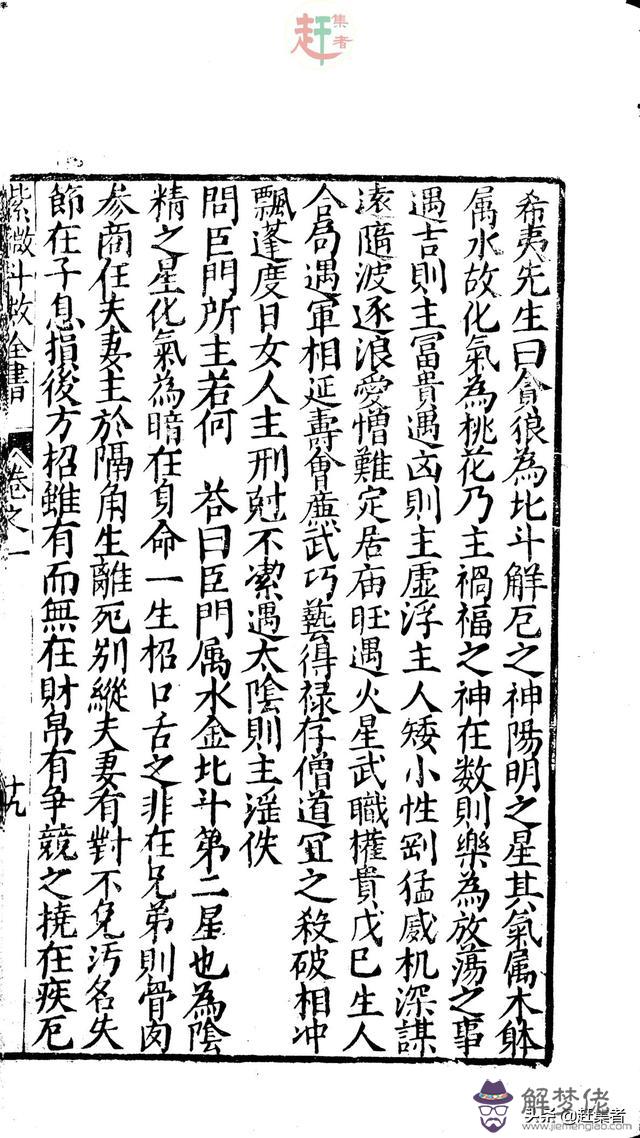 赶集者
希夷先生曰貪狼為北斗解厄之神陽明之星其氣属木躰
属水故化氣為桃花乃主禍福之神在数則樂為放蕩之事
遇吉則主冨貴遇凶則主虚浮主人矮小性剛猛威机深謀
遠隨波逐浪愛憎難定居庙旺遇火星武職權貴戊巳生人
合局遇軍相延壽會廉武巧藝得禄存僧道宜之殺破相冲
飄蓬度日女人主刑尅不潔遇太陰則主滛佚
問臣門所主若何　荅曰臣門属水金北斗第二星也為陰
精之星化氣為暗在身命一生招口舌之非在兄弟則骨肉
参商在夫妻主於隔角生離死别縱夫妻有對不免污名失
節在子息損後方招雖有而無在財帛有争競之撓在疾厄
紫微斗数全書 卷之一 十九
解梦佬
头条@赶集者
www.jiemenglao.com